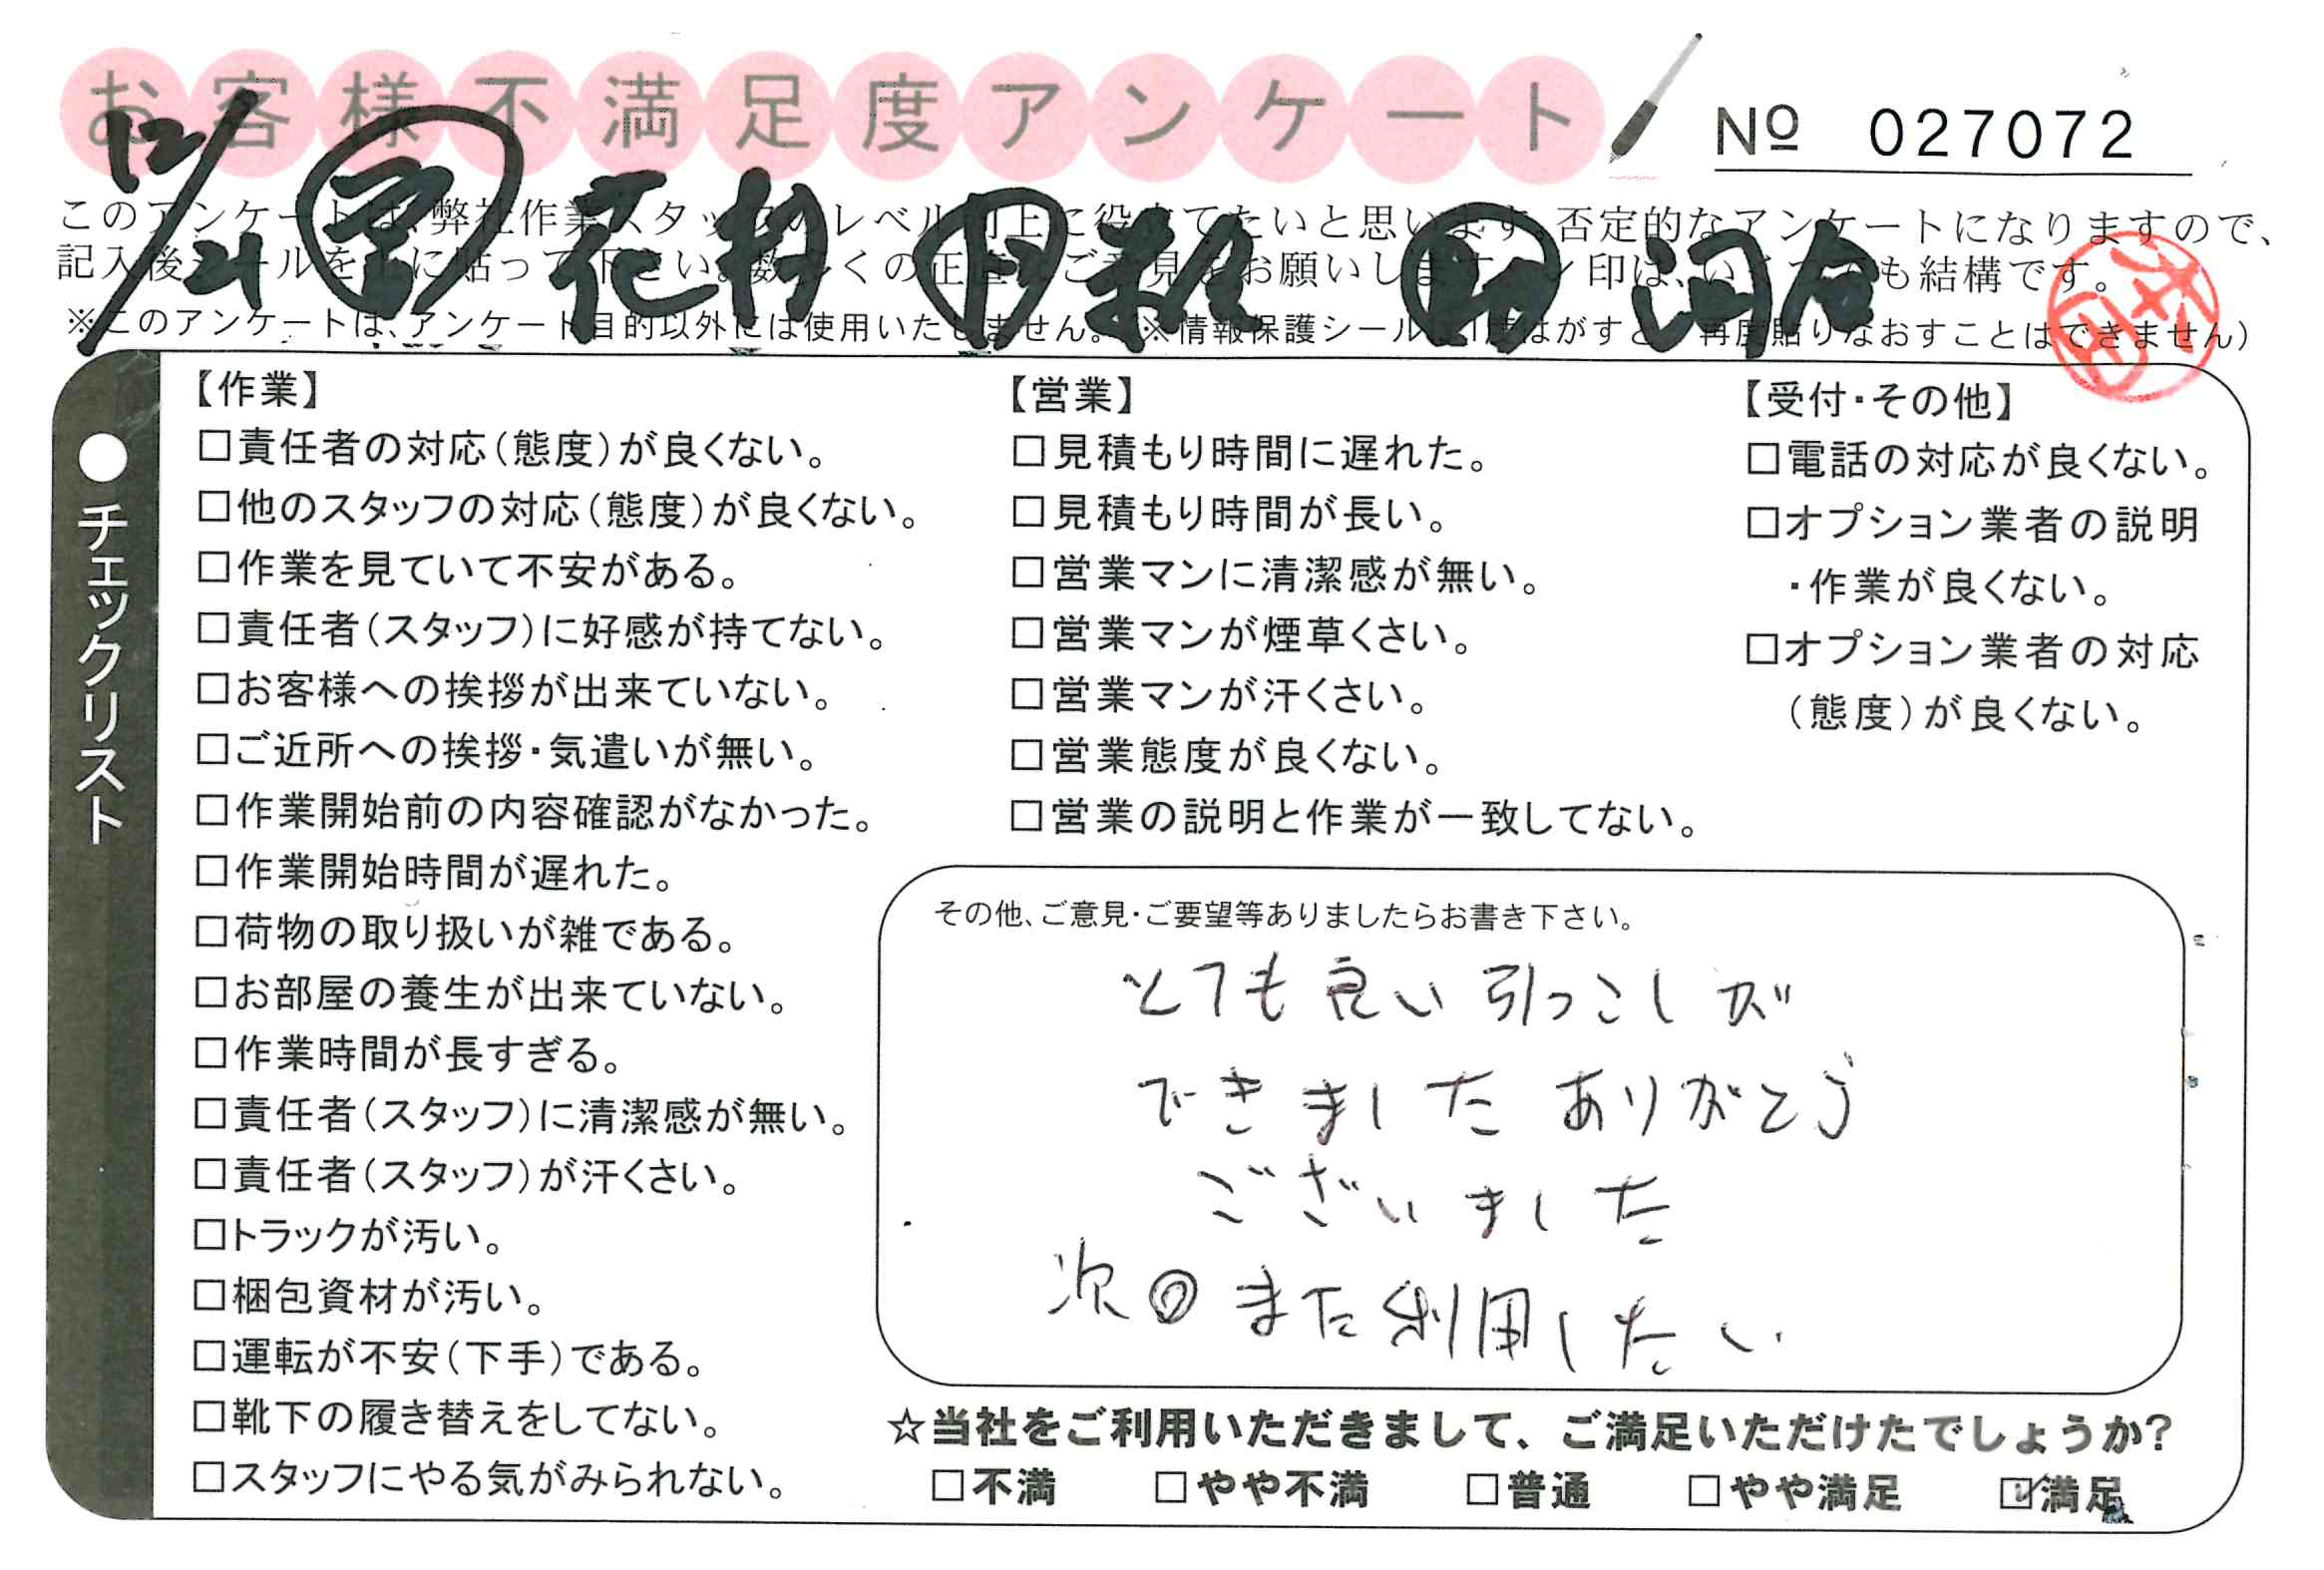 お客様不満足度アンケート
№ 027072
12/21 営 花村 作 助 河合
このアンケートは、弊社作業スタッフのレベル向上に役立てたいと思います 否定的なアンケートになりますので、
記入後シールを上に貼って下さい。数多くの正直なご意見をお願いします ペン印は、いくつでも結構です。
※このアンケートは、アンケート目的以外には使用いたしません。 ※情報保護シールは1度はがすと 再度貼りなおすことはできません)
●チェックリスト
【作業】
□責任者の対応(態度)が良くない。
□他のスタッフの対応(態度)が良くない。
□作業を見ていて不安がある。
□責任者(スタッフ)に好感が持てない。
□お客様への挨拶が出来ていない。
□ご近所への挨拶・気遣いが無い。
□作業開始前の内容確認がなかった。
□作業開始時間が遅れた。
□荷物の取り扱いが雑である。
□お部屋の養生が出来ていない。
□作業時間が長すぎる。
□責任者(スタッフ)に清潔感が無い。
□責任者(スタッフ)が汗くさい。
□トラックが汚い。
□梱包資材が汚い。
□運転が不安(下手)である。
□靴下の履き替えをしてない。
□スタッフにやる気がみられない。
【営業】
□見積もり時間に遅れた。
□見積もり時間が長い。
□営業マンに清潔感が無い。
□営業マンが煙草くさい。
□営業マンが汗くさい。
□営業態度が良くない。
□営業の説明と作業が一致してない。
【受付・その他】
□電話の対応が良くない。
□オプション業者の説明
・作業が良くない。
□オプション業者の対応
(態度)が良くない。
その他、ご意見・ご要望等ありましたらお書き下さい。
とても良い引っこしが
できました ありがとう
ございました
次回また利用したい
☆当社をご利用いただきまして、ご満足いただけたでしょうか?
□不満 □やや不満 □普通 □やや満足 ☑満足